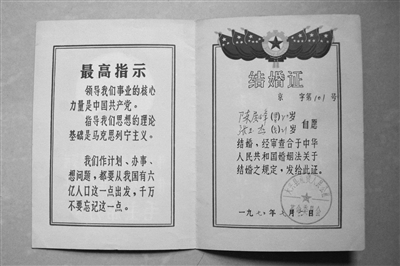 最高指示
领导我们事业的核心
力量是中国共产党。
指导我们思想的理论
基础是马克思列宁主义。
我们作计划、办事、
想问题，都要从我国有六
亿人口这一点出发，千万
不要忘记这一点。
结婚证
京 字第101号
岁
岁 自愿
结婚，经审查合于中华
人民共和国婚姻法关于
结婚之规定，发给此证。
一九七 年 月 日